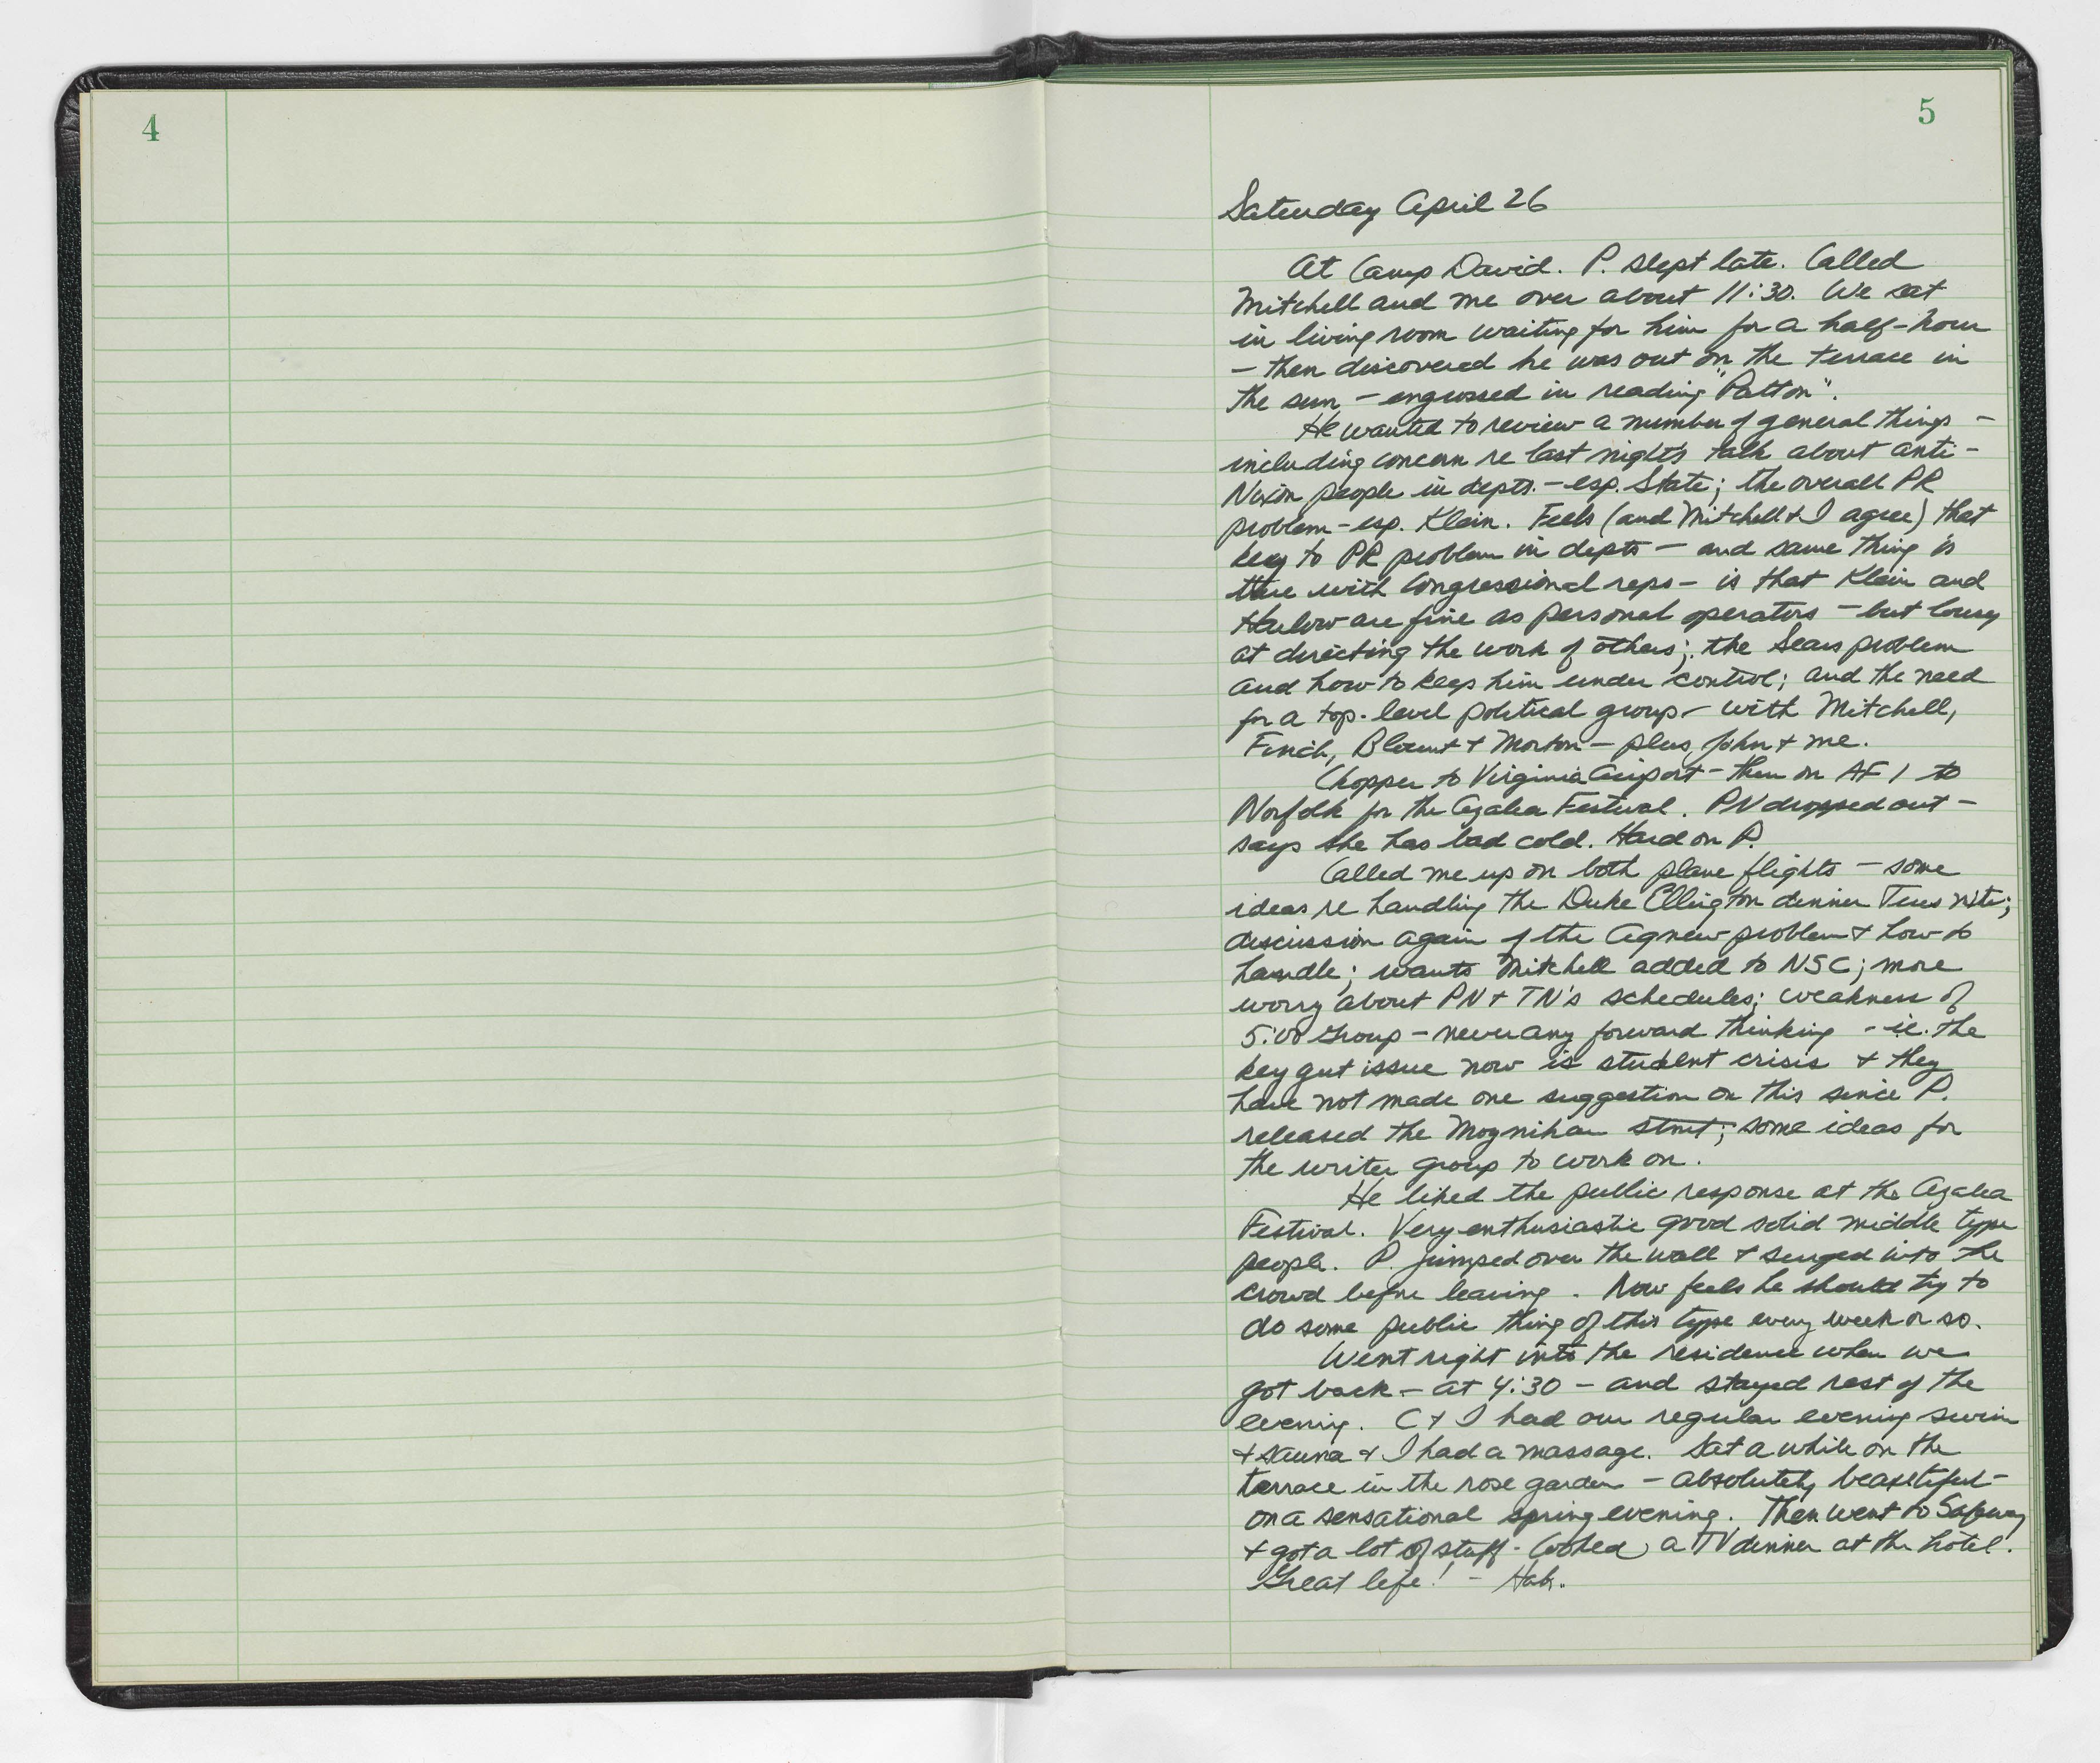 4
5
Saturday April 26
At Camp David. P. slept late. Called
Mitchell and me over about 11:30. We sat
in living room waiting for him for a half-hour
– then discovered he was out on the terrace in
the sun – engrossed in reading "Patton".
He wanted to review a number of general things –
including concern re last night's talk about anti-
Nixon people in depts. – esp. State; the overall PR
problem – esp. Klein. Feels (and Mitchell & I agree) that
key to PR problem in depts – and same thing is
true with Congressional reps – is that Klein and
Harlow are fine as personal operators – but lousy
at directing the work of others; the Sears problem
and how to keep him under control; and the need
for a top-level political group – with Mitchell,
Finch, Blount & Morton – plus John & me.
Chopper to Virginia airport – then on AF 1 to
Norfolk for the Azalea Festival. PN dropped out –
says she has bad cold. Hard on P.
Called me up on both plane flights – some
ideas re handling the Duke Ellington dinner Tues nite;
discussion again of the Agnew problem & how to
handle; wants Mitchell added to NSC; more
worry about PN & TN's schedules; weakness of
5:00 Group – never any forward thinking – ie. the
key gut issue now is student crisis & they
have not made one suggestion on this since P.
released the Moynihan stmt; some ideas for
the writer group to work on.
He liked the public response at the Azalea
Festival. Very enthusiastic good solid middle type
people. P. jumped over the wall & surged into the
crowd before leaving. Now feels he should try to
do some public thing of this type every week or so.
Went right into the residence when we
got back – at 4:30 – and stayed rest of the
evening. C & I had our regular evening swim
& sauna & I had a massage. Sat a while on the
terrace in the rose garden – absolutely beautiful –
on a sensational spring evening. Then went to Safeway
& got a lot of stuff – Cooked a TV dinner at the hotel.
Great life! – Hah.